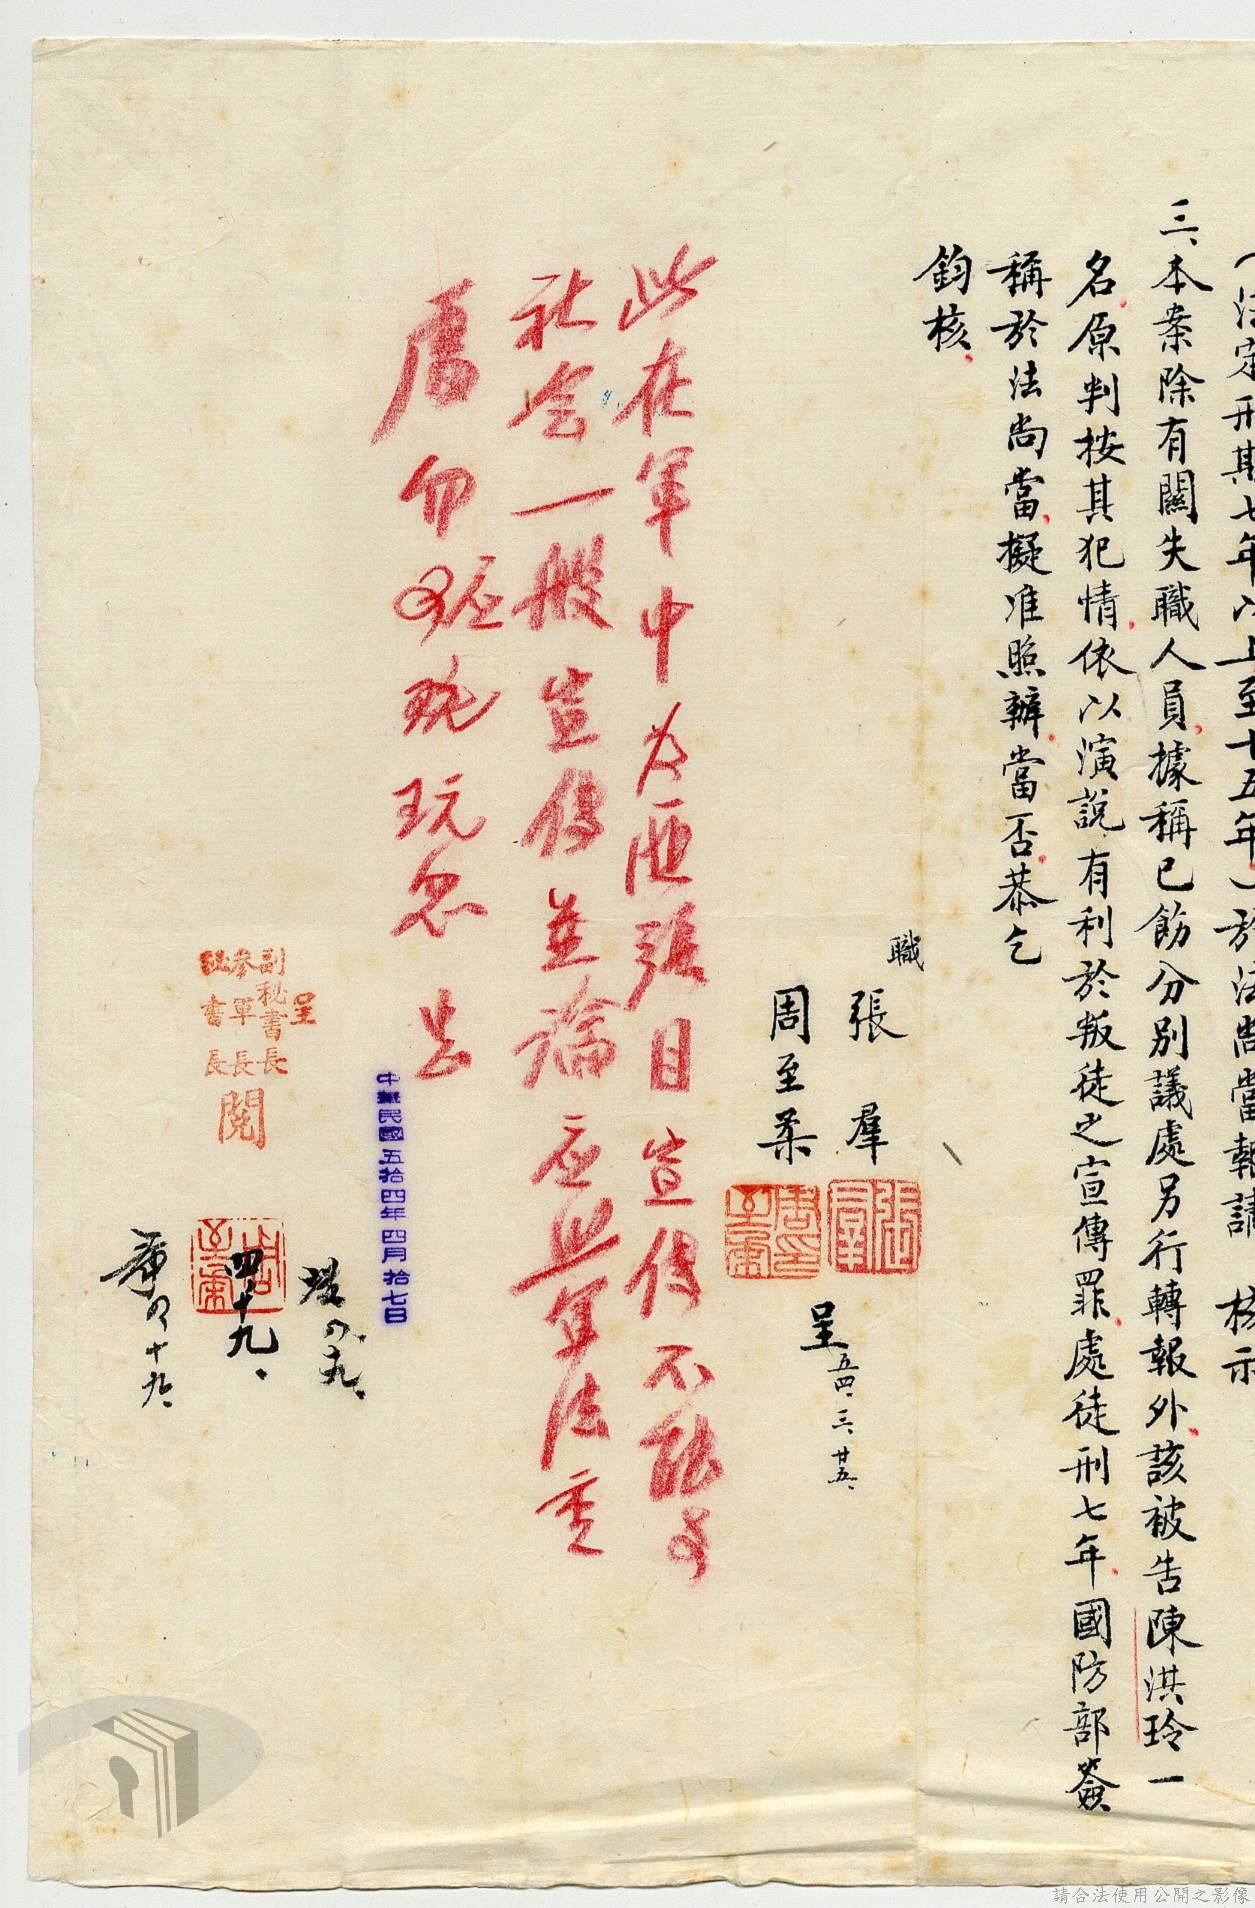 （法定刑期七年以上至十五年）於法尚當報請　核示
三、本案除有關失職人員據稱已飭分別議處另行轉報外該被告陳洪玲一
名原判按其犯情依以演說有利於叛徒之宣傳罪處徒刑七年國防部簽
稱於法尚當擬准照辦當否恭乞
鈞核
職
張羣
周至柔
呈
五四、三、廿五、
此在軍中为匪張目宣传不能与
社会一般宣传並論应以軍法重
中華民國五拾四年四月拾七日
呈
副秘書長
參軍長
秘書長
閱
四、十九、